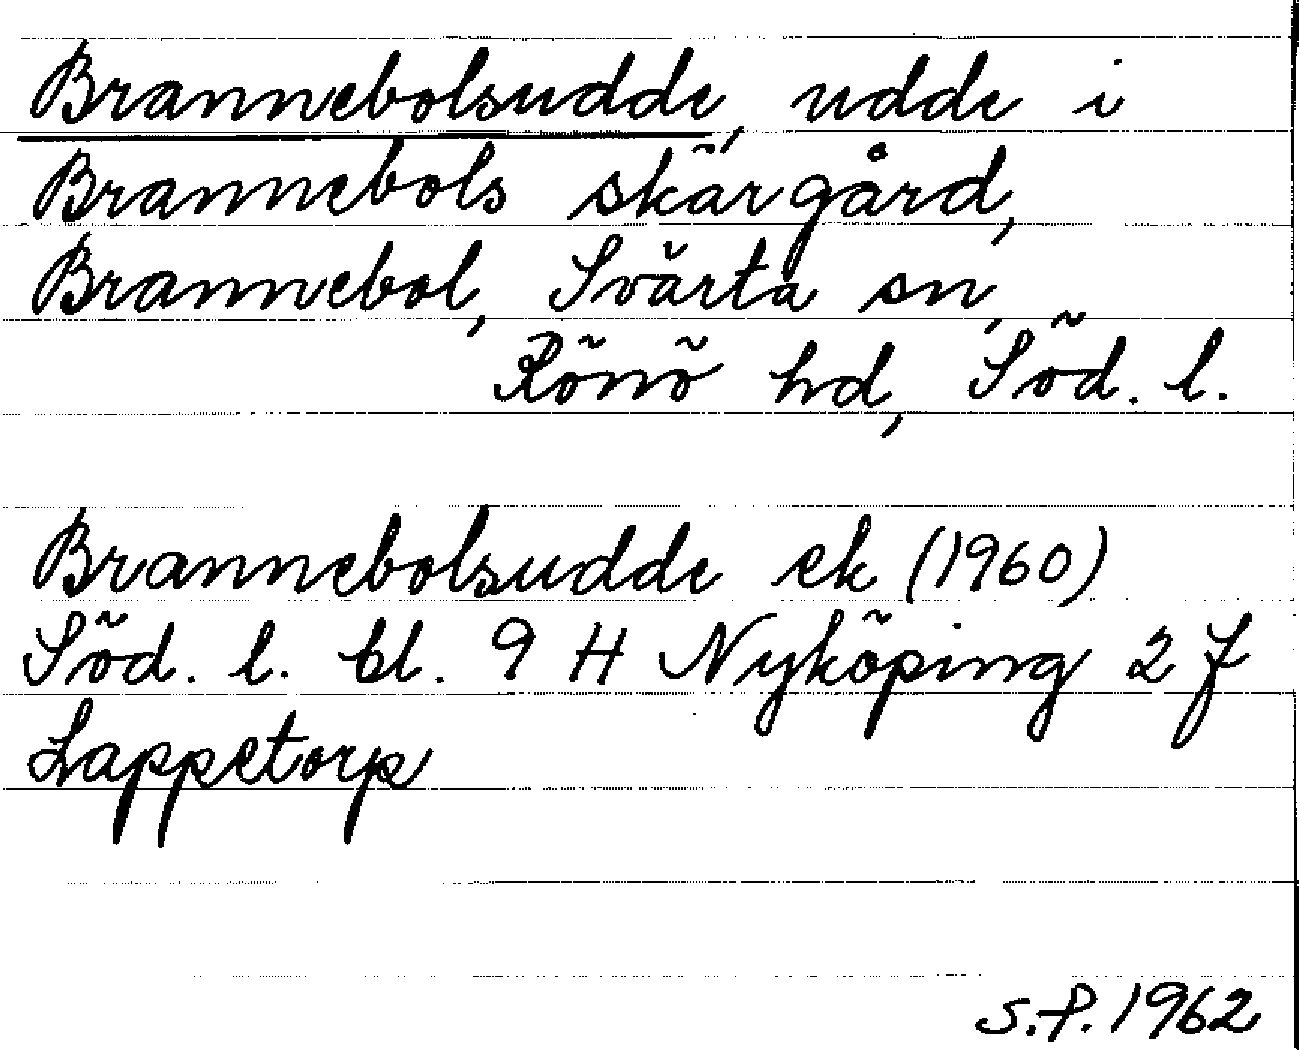 Brannebolsudde, udde i
Brannebols skärgård,
Brannebol, Svärta sn,
Rönö hd, Söd. l.
Brannebolsudde ek (1960)
Söd. l. bl. 9 H Nyköping 2 f
Lappetorp
S.P. 1962